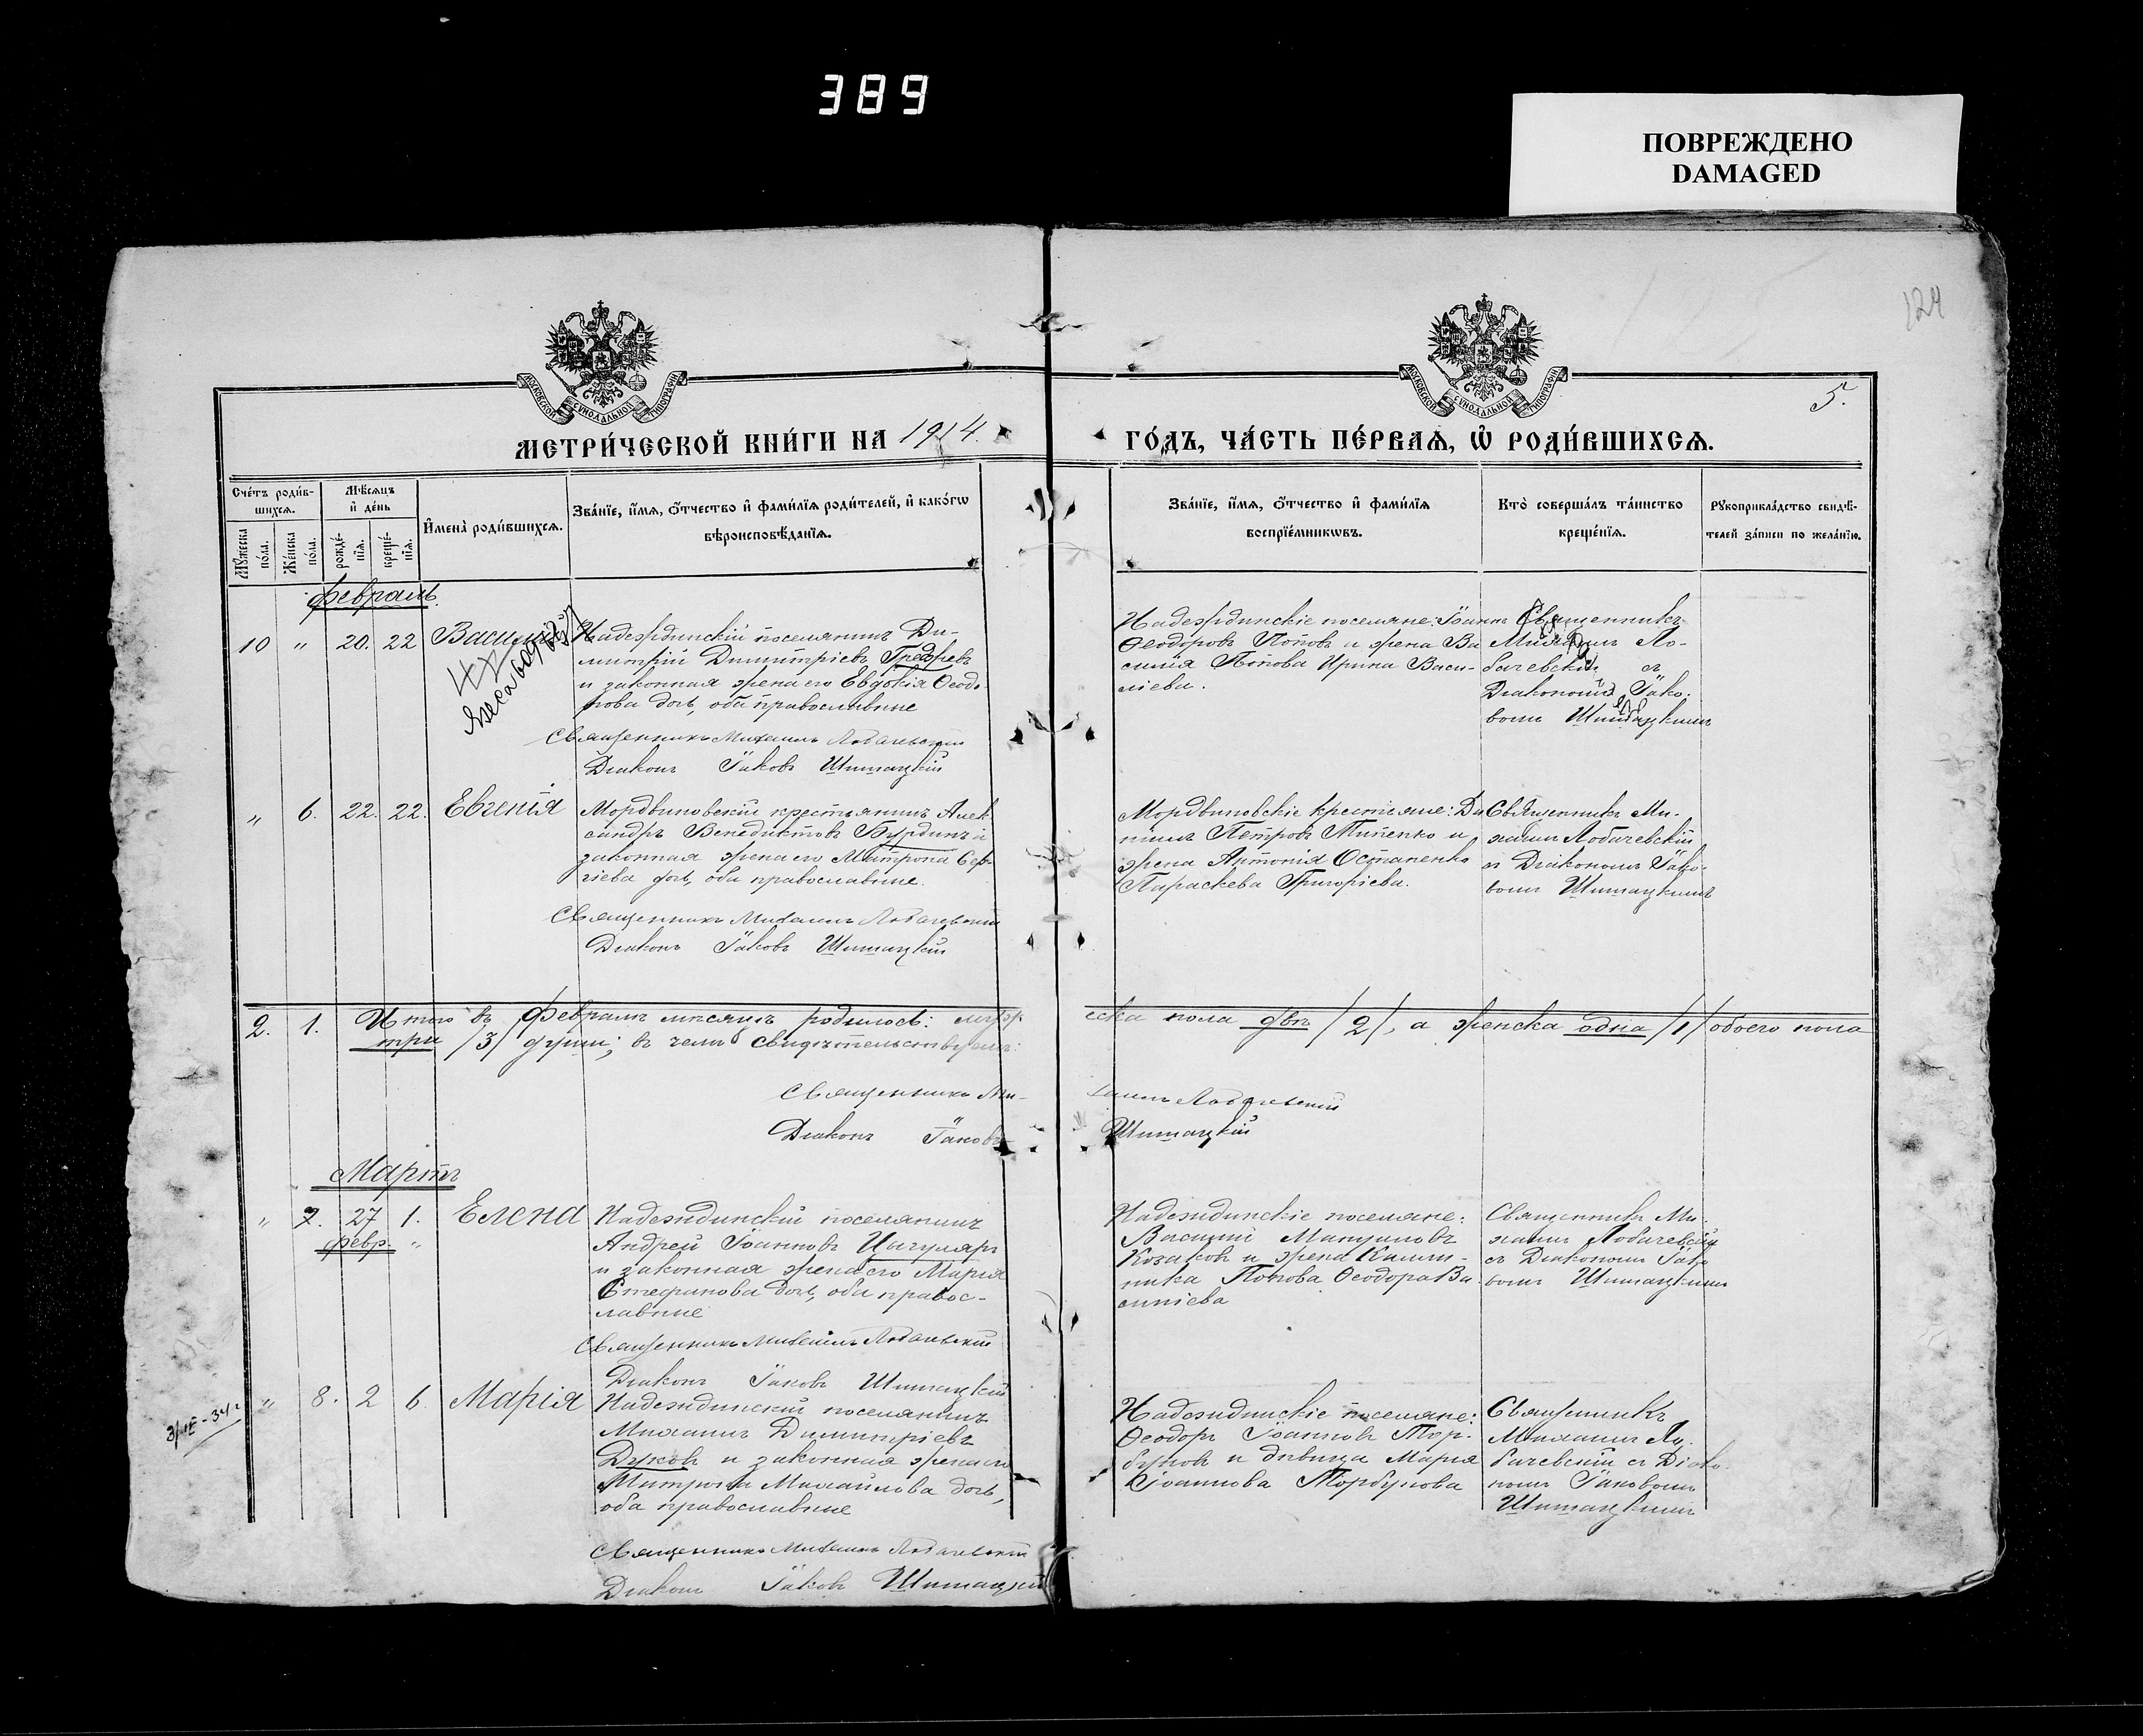 389
ПОВРЕЖДЕНО
DAMAGED
124
5.
МОСКОВСКОЙ СѴНОДАЛЬНОЙ ТИПОГРАФІИ
МОСКОВСКОЙ СѴНОДАЛЬНОЙ ТИПОГРАФІИ
МЕТРИ́ЧЕСКОЙ КНИ́ГИ НА 1914.
ГО́ДЪ, ЧА́СТЬ ПЕ́РВАѦ, Ѽ РОДИ́ВШИХСѦ.
Сче́тъ роди́в-
шихсѧ.
Мꙋ́жеска по́ла.
Же́нска по́ла.
Мѣ́сѧцъ
и҆ де́нь
рожде́-
нїѧ.
креще́-
нїѧ.
И҆мена̀ роди́вшихсѧ.
Зва́нїе, и҆́мѧ, ѻ҆́тчество и҆ фами́лїѧ роди́телей, и҆ како́гѡ
вѣроисповѣ́данїѧ.
Зва́нїе, и҆́мѧ, ѻ҆́тчество и҆ фами́лїѧ
воспрїе́мникѡвъ.
Кто̀ соверша́лъ та́инство
креще́нїѧ.
Рꙋкоприкла́дство свидѣ́-
телей за́писи по жела́нїю.
Февраль.
10 " 20. 22 Василій
Надеждинскій поселянинъ Ди-
митрій Димитріевъ
и законная жена его Евдокія Ѳеодо-
рова дочь, оба православные
Священникъ Михаилъ Лобачевскій
Діаконъ Іаковъ Шишацкій
Надеждинскіе поселяне: Іоаннъ
Ѳеодоровъ Поповъ и жена Ва
силія Попова Ирина Васи-
ліева.
Священникъ
Михаилъ Ло-
бачевскій съ
Діакономъ Іако-
вомъ Шишацкимъ
" 6. 22. 22. Евгенія
Мордвиновскій крестьянинъ Алек
сандръ Венедиктовъ Бурдинъ и
законная жена его Матрона Сер-
гіева дочь, оба православные.
Священникъ Михаилъ Лобачевскій
Діаконъ Іаковъ Шишацкій
Мордвиновскіе крестьяне:
Петровъ и
жена Антонія Остапенко
Параскева Григоріева.
Священникъ Ми-
хаилъ Лобачевскій
съ Діакономъ Іако-
вомъ Шишацкимъ
2. 1. Итого въ Февралѣ мѣсяцѣ родилось: муж
еска пола два /2/, а женска одна /1/ обоего пола
три /3/ души; въ чемъ свидѣтельствуемъ:
Священникъ Ми-
хаилъ Лобачевскій
Діаконъ Іаковъ
Шишацкій
Мартъ
" 7. 27 1. Елена
февр. "
Надеждинскій поселянинъ
Андрей Іоанновъ Цагуляръ
и законная жена его Марія
Стефанова дочь, оба правос-
лавные
Священникъ Михаилъ Лобачевскій
Діаконъ Іаковъ Шишацкій
Надеждинскіе поселяне:
Василій Мануиловъ
Козаковъ и жена Калли-
ника Попова Ѳеодора Ва
силіева
Священникъ Ми-
хаилъ Лобачевскій
съ Діакономъ Іако
вомъ Шишацкимъ
" 8. 2 6. Марія
Надеждинскій поселянинъ
Михаилъ Димитріевъ
Дуковъ и законная жена его
Матрона Михайлова дочь,
оба православные
Священникъ Михаилъ Лобачевскій
Діаконъ Іаковъ Шишацкій
Надеждинскіе поселяне:
Ѳеодоръ Іоанновъ Тор-
буновъ и дѣвица Марія
Іоаннова Торбунова
Священникъ
Михаилъ Ло-
бачевскій съ Діако-
номъ Іаковомъ
Шишацкимъ